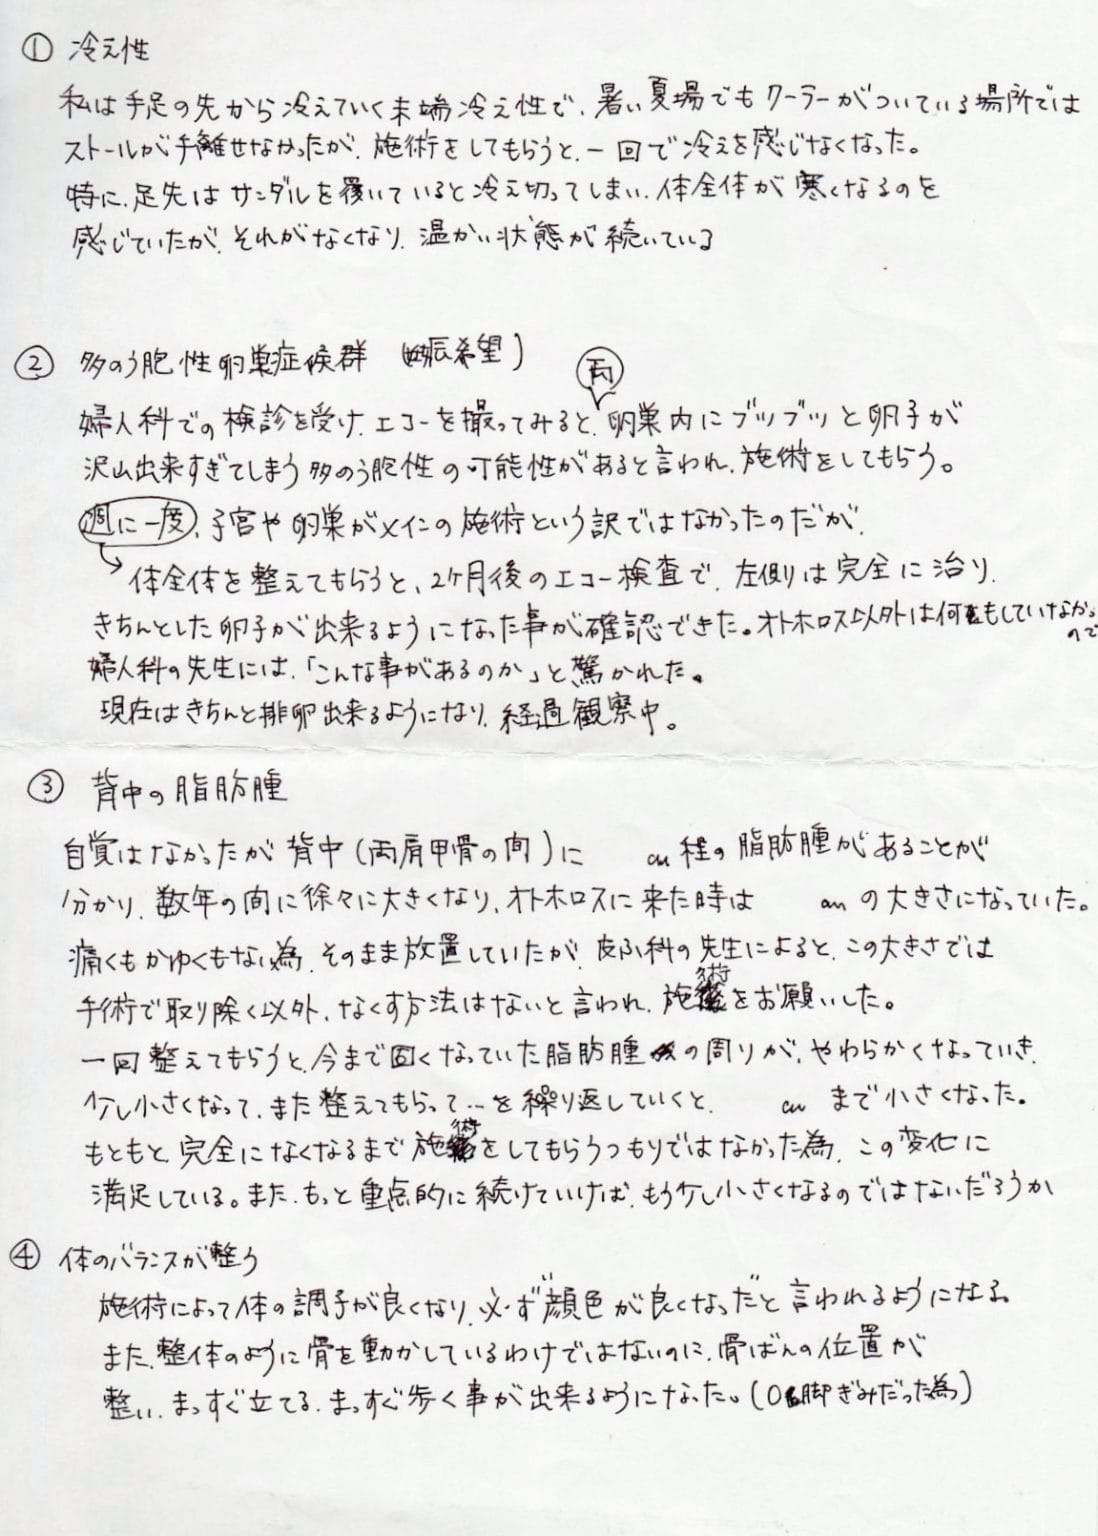 ① 冷え性
私は手足の先から冷えていく末端冷え性で、暑い夏場でもクーラーがついている場所では
ストールが手離せなかったが、施術をしてもらうと、一回で冷えを感じなくなった。
特に、足先はサンダルを履いていると冷え切ってしまい、体全体が寒くなるのを
感じていたが、それがなくなり、温かい状態が続いている
② 多のう胞性卵巣症候群 (妊娠希望)
両
婦人科での検診を受け、エコーを撮ってみると、卵巣内にブツブツと卵子が
沢山出来すぎてしまう多のう胞性の可能性があると言われ、施術をしてもらう。
週に一度、子宮や卵巣がメインの施術という訳ではなかったのだが、
体全体を整えてもらうと、2ヶ月後のエコー検査で、左側は完全に治り、
きちんとした卵子が出来るようになった事が確認できた。オトホロス以外は何もしていなかった
ので
婦人科の先生には、「こんな事があるのか」と驚かれた。
現在はきちんと排卵出来るようになり、経過観察中。
③ 背中の脂肪腫
自覚はなかったが背中(両肩甲骨の間)に cm程の脂肪腫があることが
分かり、数年の間に徐々に大きくなり、オトホロスに来た時は cmの大きさになっていた。
痛くもかゆくもない為、そのまま放置していたが、皮ふ科の先生によると、この大きさでは
手術で取り除く以外、なくす方法はないと言われ、施術をお願いした。
一回整えてもらうと、今まで固くなっていた脂肪腫の周りが、やわらかくなっていき、
少し小さくなって、また整えてもらって…を繰り返していくと、 cmまで小さくなった。
もともと、完全になくなるまで施術をしてもらうつもりではなかった為、この変化に
満足している。また、もっと重点的に続けていけば、もう少し小さくなるのではないだろうか
④ 体のバランスが整う
施術によって体の調子が良くなり、必ず"顔色が良くなっだ"と言われるようになる。
また、整体のように骨を動かしているわけではないのに、骨ばんの位置が
整い、まっすぐ立てる、まっすぐ歩く事が出来るようになった。(O脚ぎみだった為)